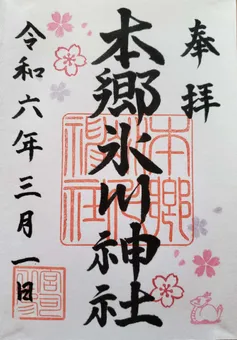 奉拝
本郷氷川神社
令和六年三月一日
本郷氷川神社